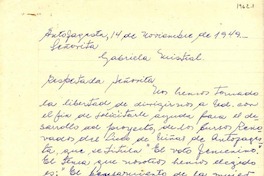 Antofagasta, 14 de noviembre de 1949.
Señorita
Gabriela Mistral
Respetada Señorita
Nos hemos tomado
la libertad de dirigirnos a Ud. con
el fin de solicitarle ayuda para el de-
sarrollo del proyecto, de los Cursos Reno-
vados del Liceo de Niñas de Antofagas-
ta, que se titula "El voto femenino".
El tema que nosotros hemos elegido
es: "El pensamiento de la mujer